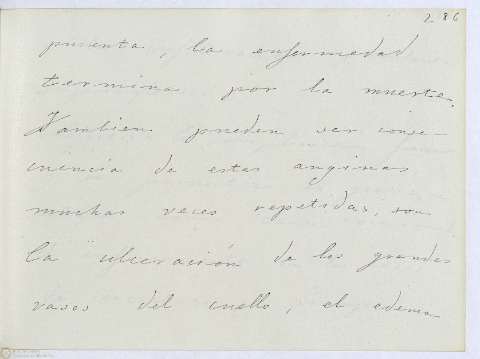 286
presenta, la enfermedad
termina por la muerte.
Tambien pueden ser conse-
cuencia de estas anginas
muchas veces repetidas, son
la ulceración de los grandes
vasos del cuello, el edema